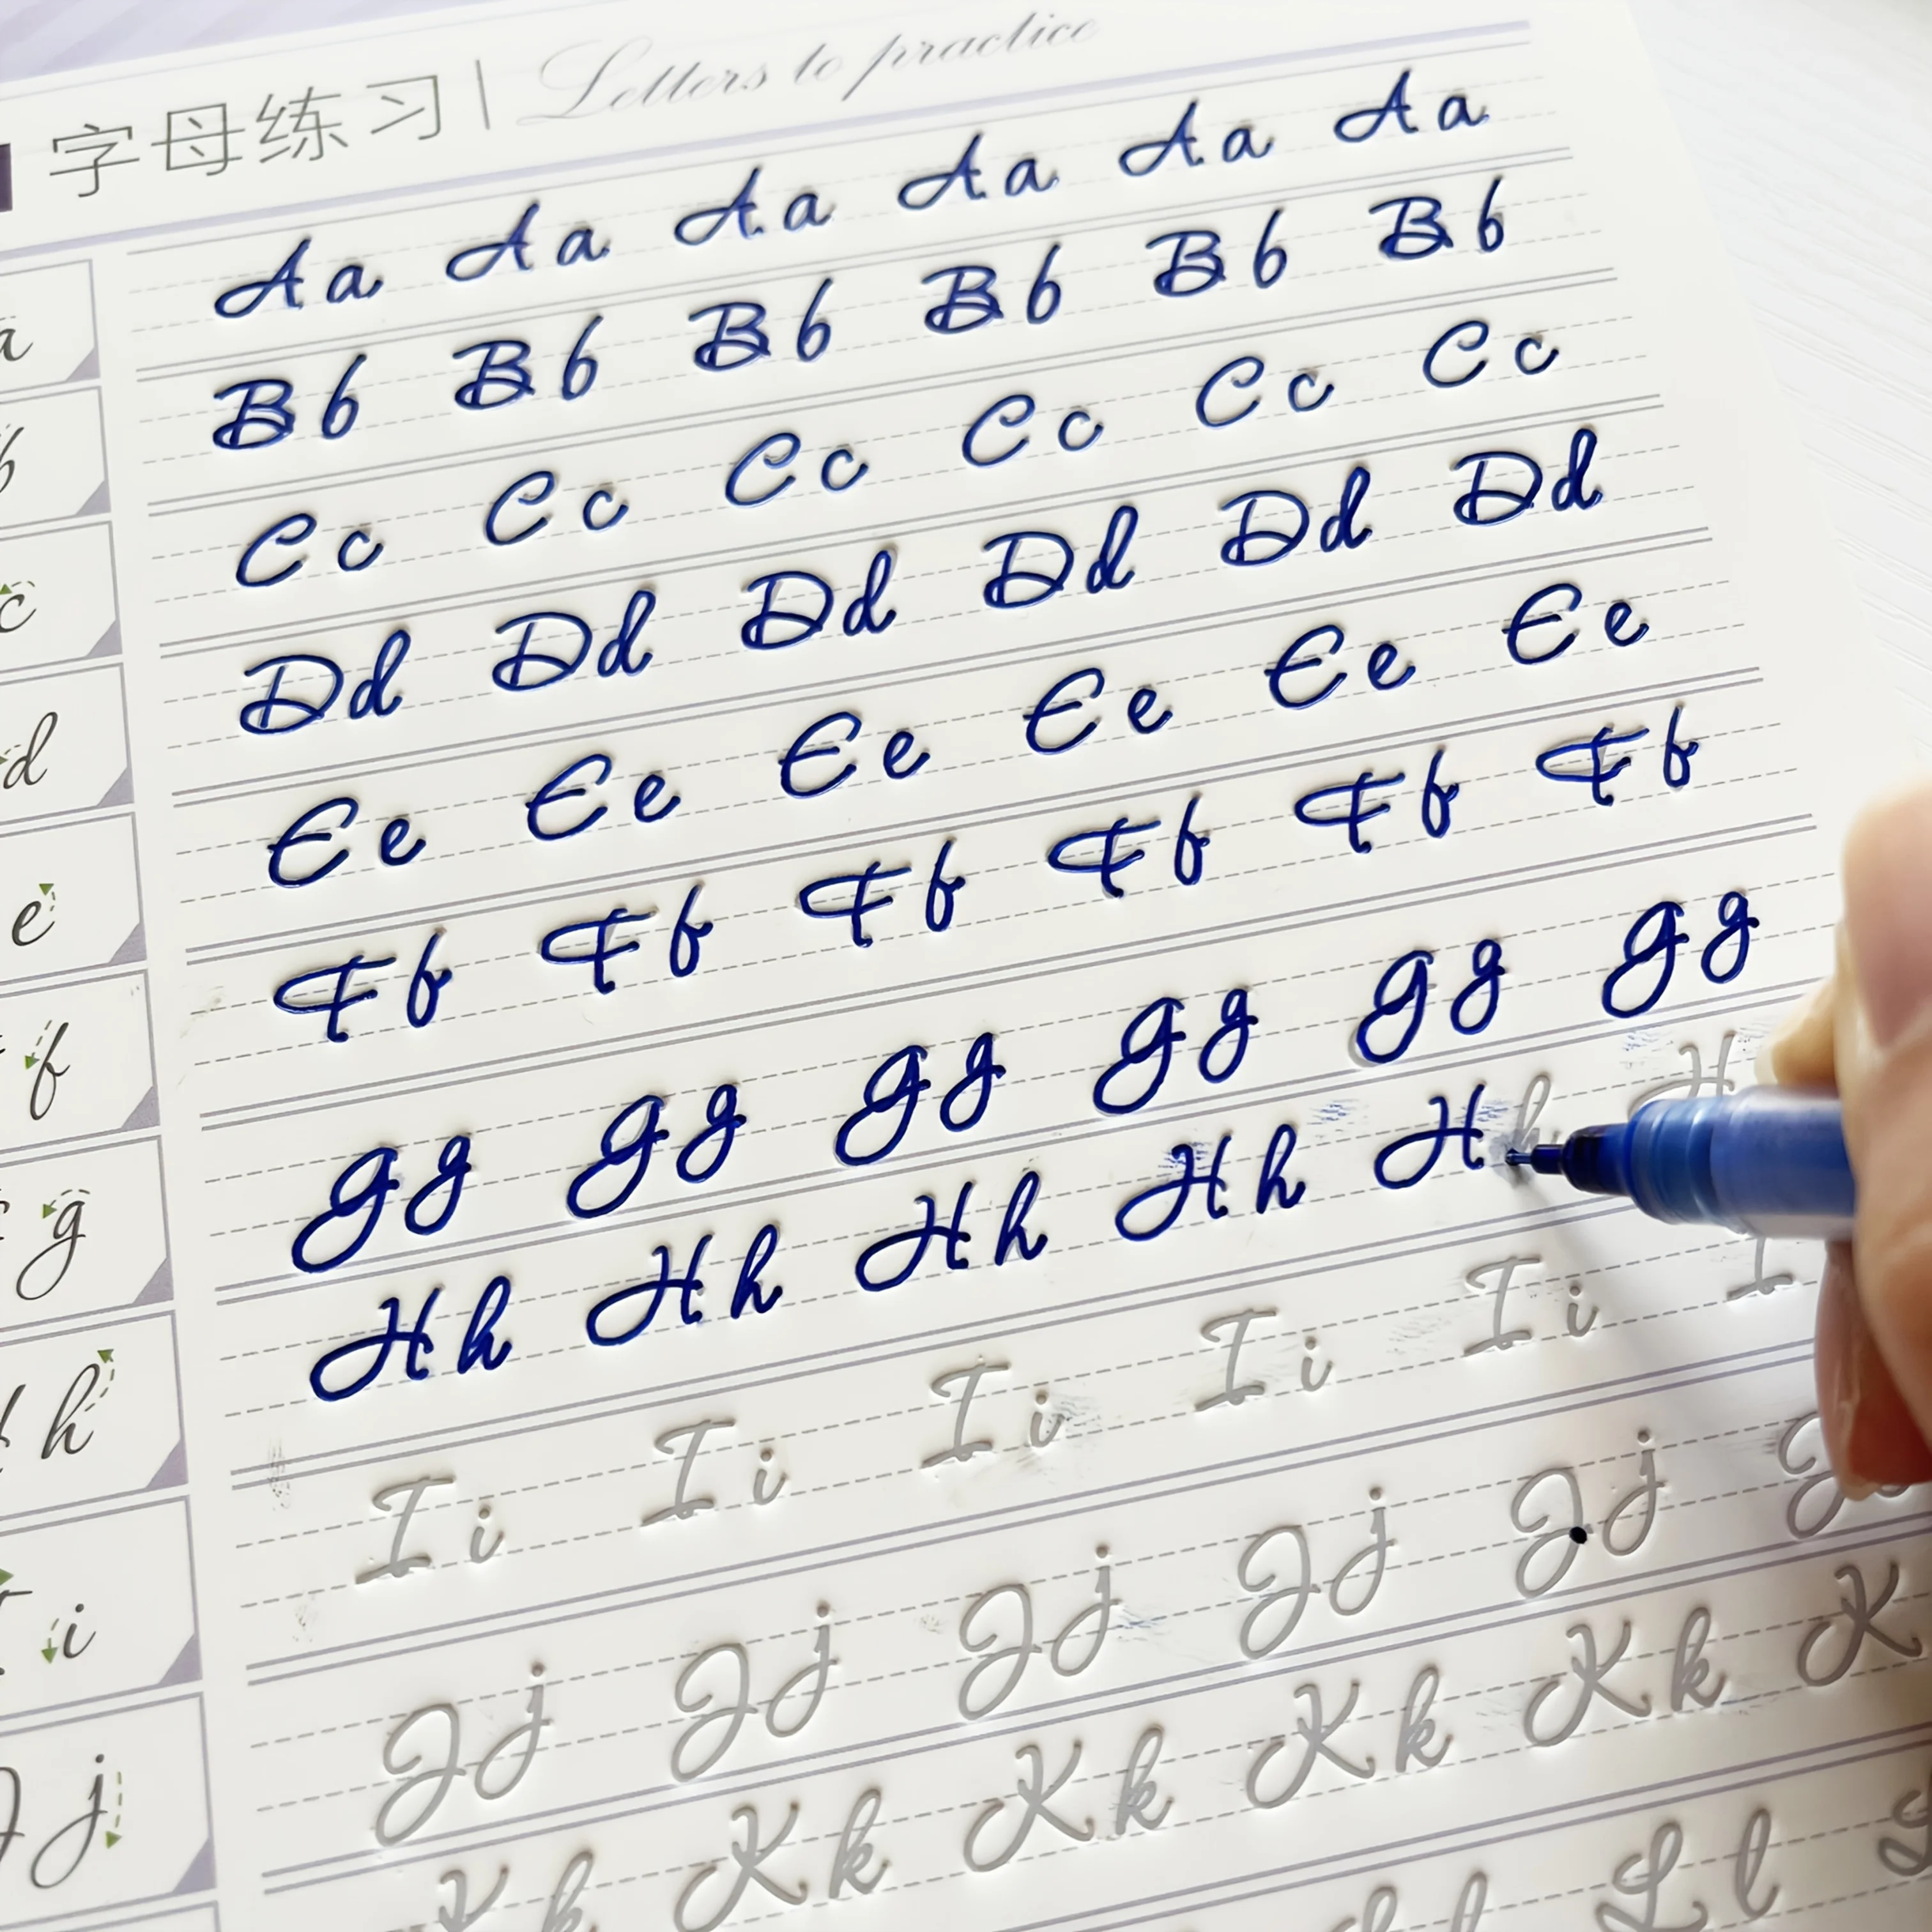 字母练习 | Letters to practice
a Aa Aa Aa Aa Aa Aa
b Bb Bb Bb Bb Bb Bb
c Cc Cc Cc Cc Cc Cc
d Dd Dd Dd Dd Dd Dd
e Ee Ee Ee Ee Ee Ee
f Ff Ff Ff Ff Ff Ff
g Gg Gg Gg Gg Gg Gg
h Hh Hh Hh Hh Hh H
i Ii Ii Ii Ii Ii I
Jj Jj Jj Jj Jj Jj J
Kk Kk Kk Kk Kk K
Ll Ll